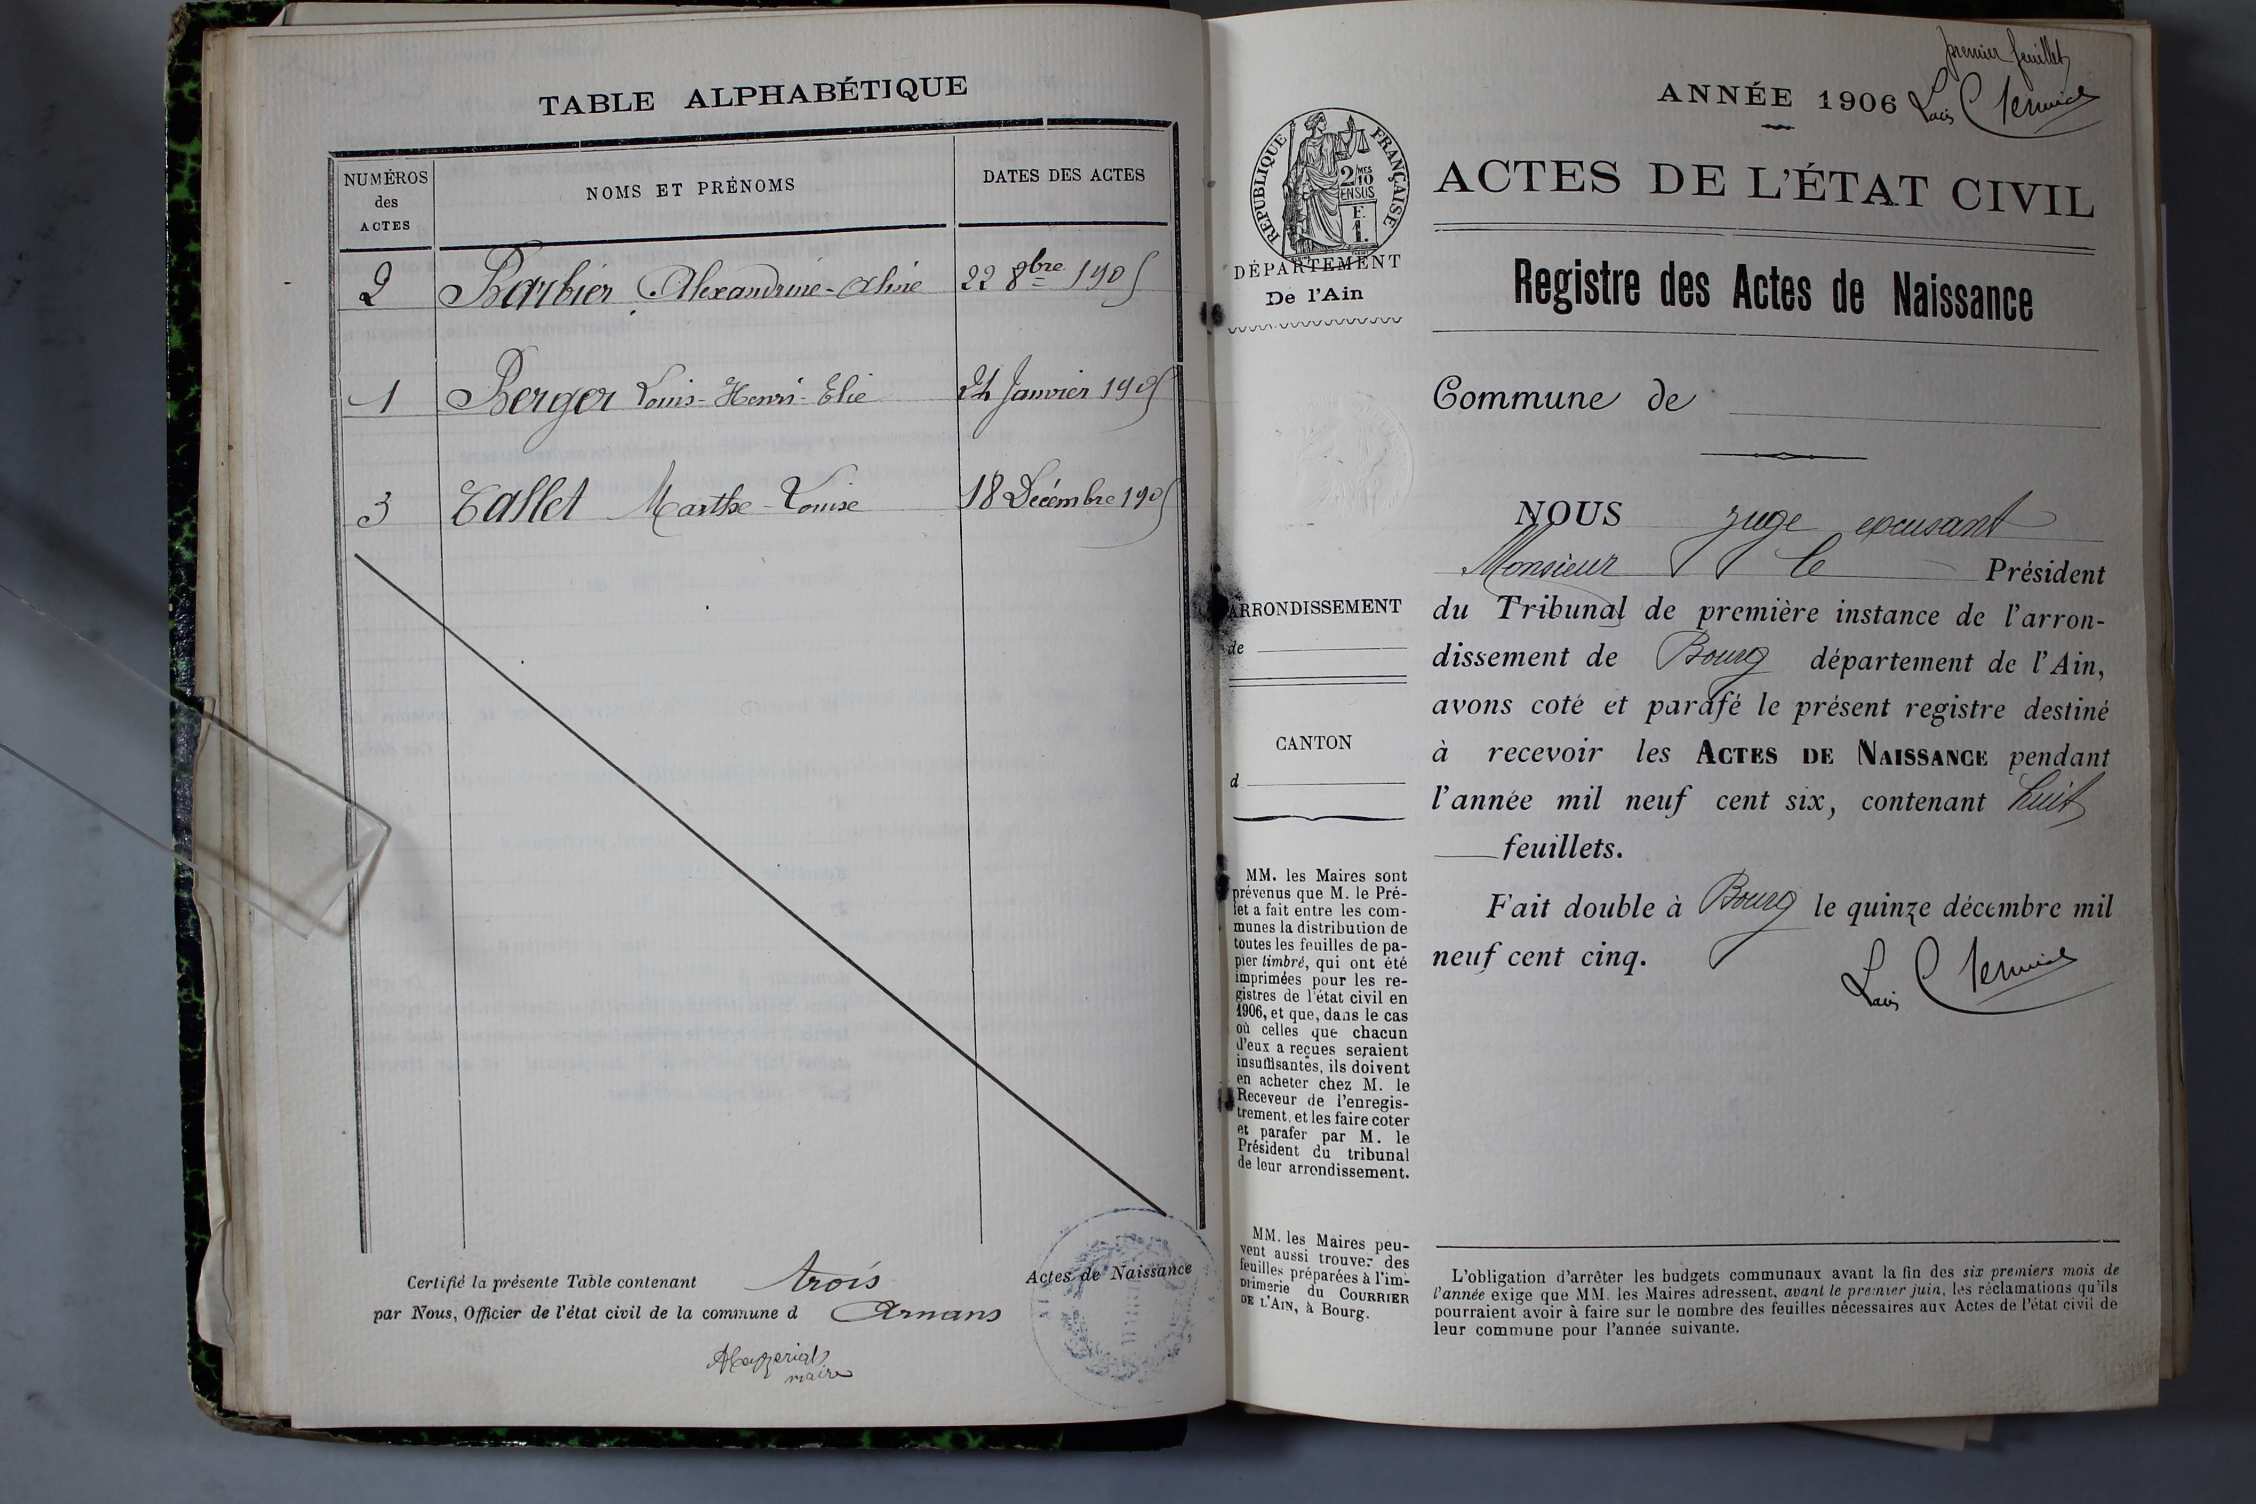 TABLE ALPHABÉTIQUE
NUMÉROS
des
ACTES
NOMS ET PRÉNOMS
DATES DES ACTES
2 Barbier Alexandrine-Aline 22 8bre 1905
1 Berger Louis-Henri-Elie 24 Janvier 1905
3 Tallet Marthe-Louise 18 Décembre 1905
Certifié la présente Table contenant trois Actes de Naissance
par Nous, Officier de l'état civil de la commune d Arnans
maire
premier feuillet
ANNÉE 1906
RÉPUBLIQUE FRANÇAISE
2/10
MES
EN SUS
F.
1.
DÉPARTEMENT
De l'Ain
ACTES DE L'ÉTAT CIVIL
Registre des Actes de Naissance
Commune de
ARRONDISSEMENT
de
CANTON
d
NOUS juge excusant
Monsieur le Président
du Tribunal de première instance de l'arron-
dissement de Bourg département de l'Ain,
avons coté et parafé le présent registre destiné
à recevoir les ACTES DE NAISSANCE pendant
l'année mil neuf cent six, contenant huit
feuillets.
Fait double à Bourg le quinze décembre mil
neuf cent cinq.
MM. les Maires sont
prévenus que M. le Pré-
fet a fait entre les com-
munes la distribution de
toutes les feuilles de pa-
pier timbré, qui ont été
imprimées pour les re-
gistres de l'état civil en
1906, et que, dans le cas
où celles que chacun
d'eux a reçues seraient
insuffisantes, ils doivent
en acheter chez M. le
Receveur de l'enregis-
trement, et les faire coter
et parafer par M. le
Président du tribunal
de leur arrondissement.
MM. les Maires peu-
vent aussi trouver des
feuilles préparées à l'im-
primerie du COURRIER
DE L'AIN, à Bourg.
L'obligation d'arrêter les budgets communaux avant la fin des six premiers mois de
l'année exige que MM. les Maires adressent, avant le premier juin, les réclamations qu'ils
pourraient avoir à faire sur le nombre des feuilles nécessaires aux Actes de l'état civil de
leur commune pour l'année suivante.